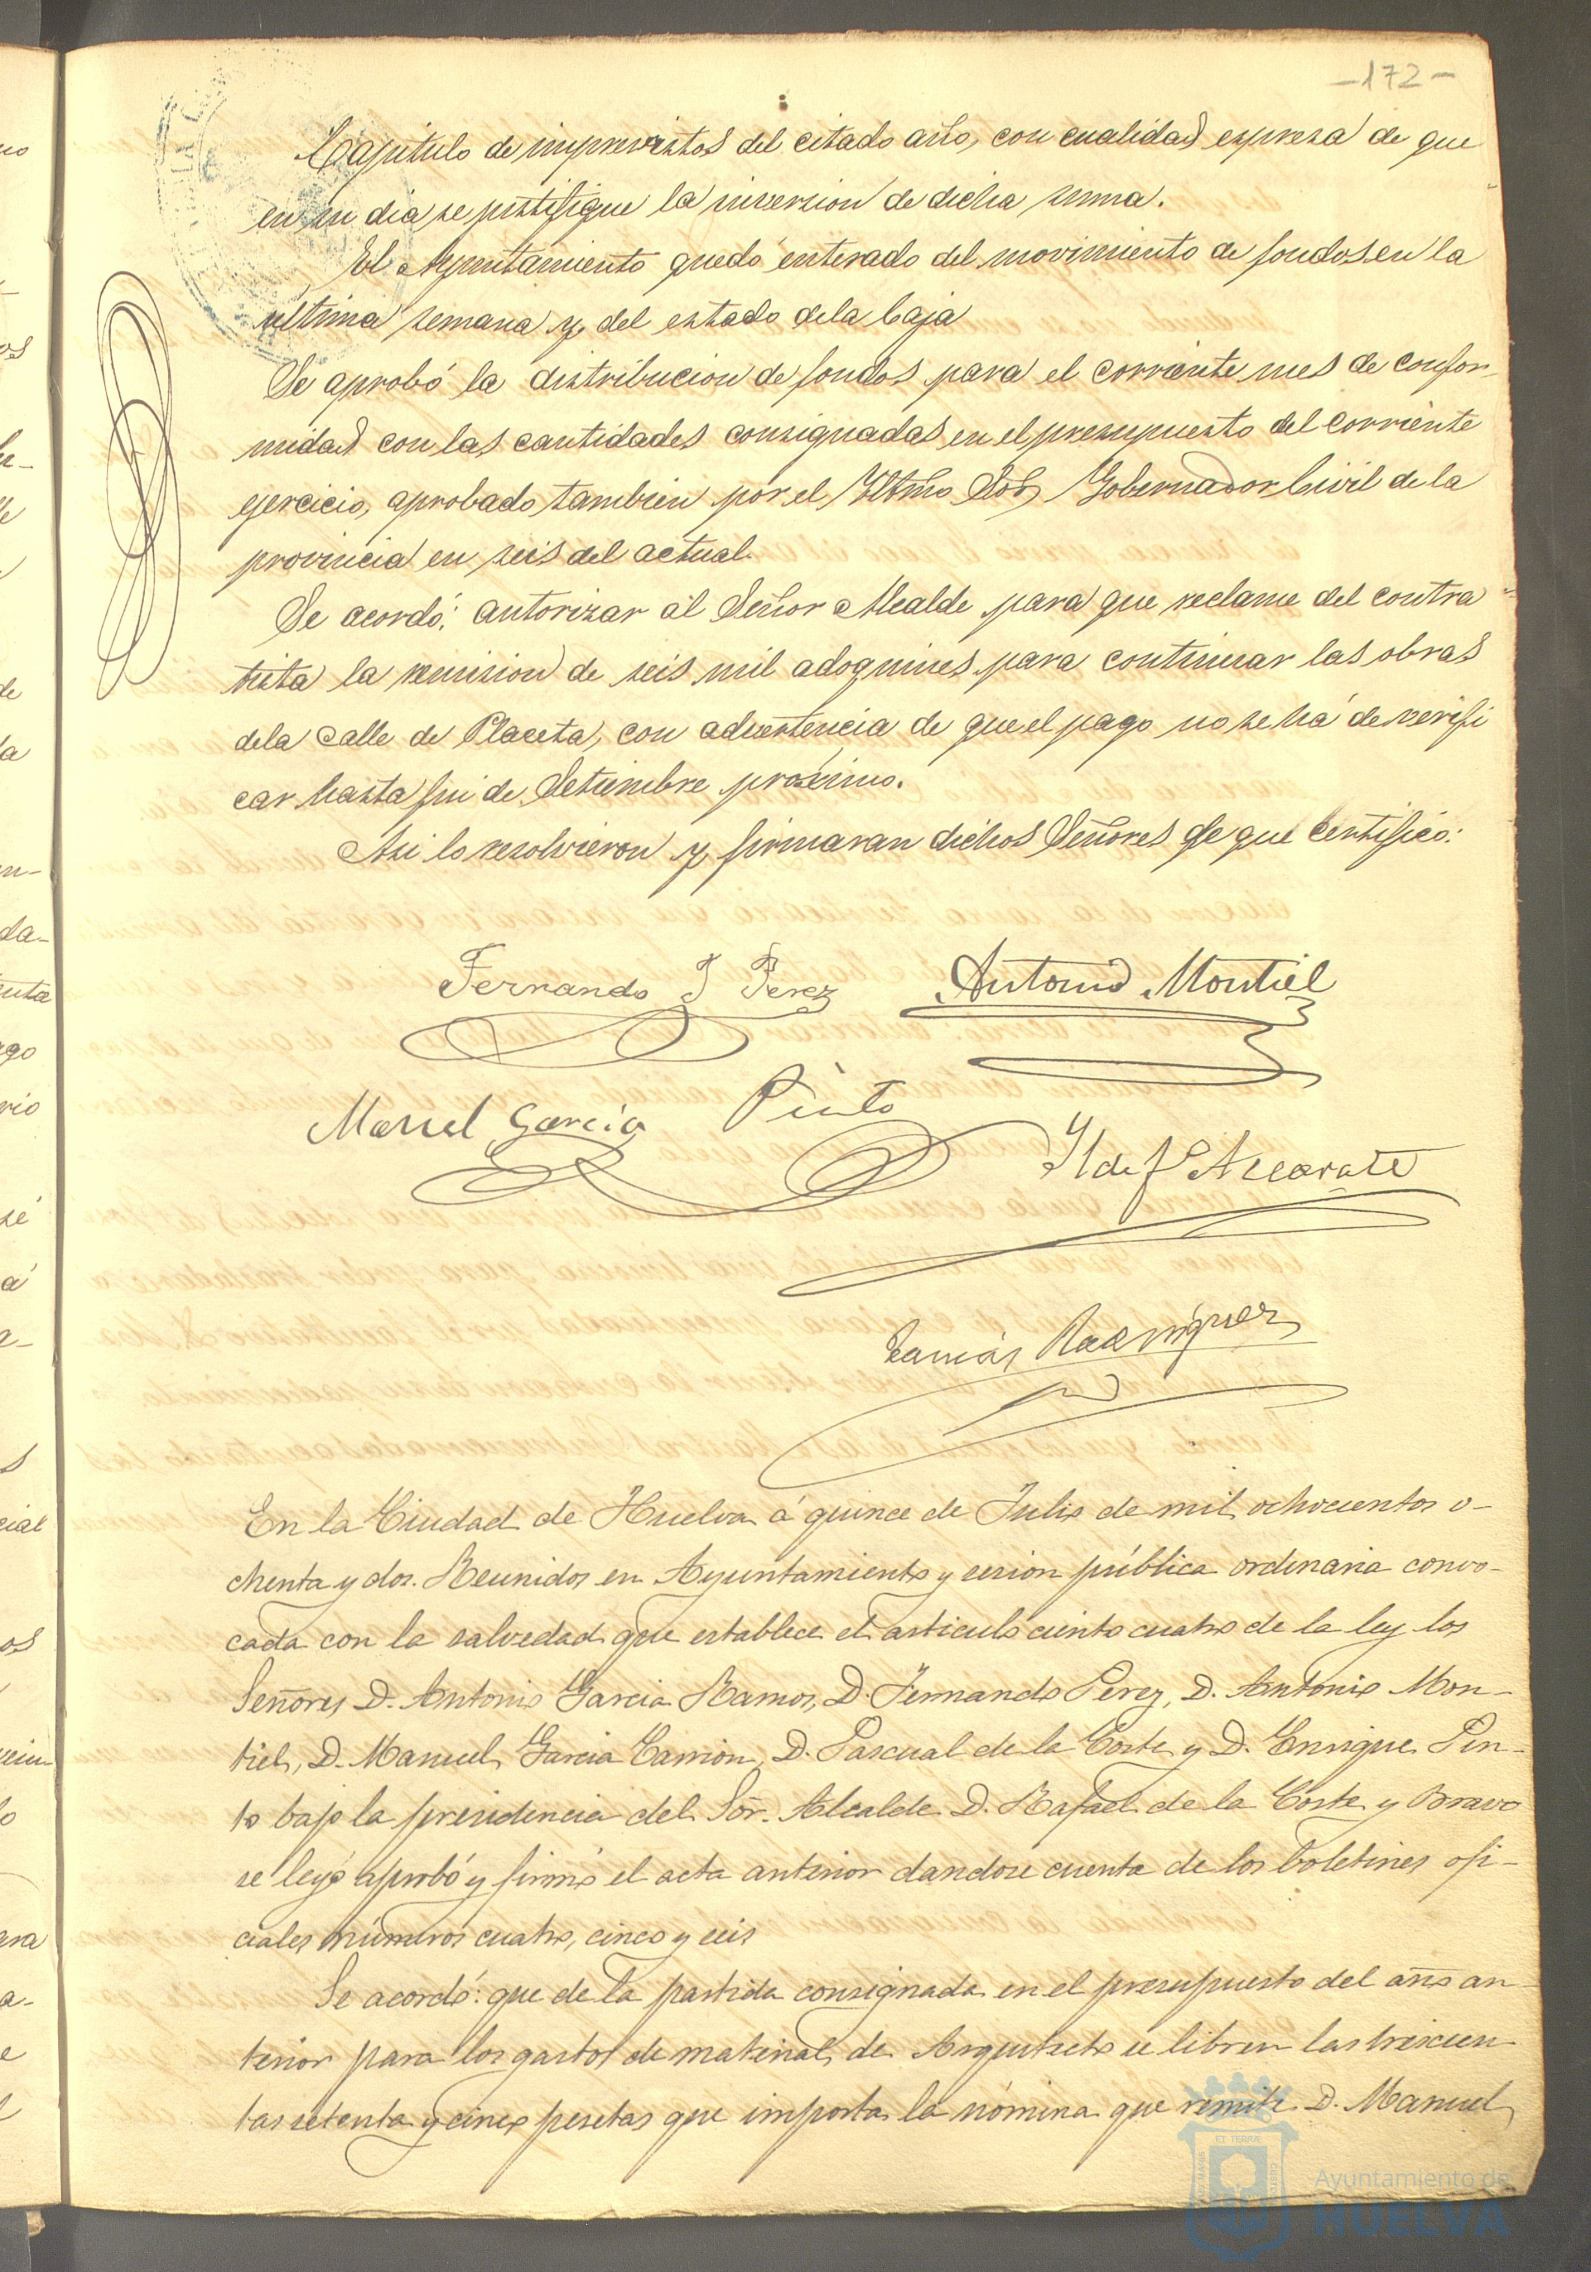 -172-
Capitulo de imprevistos del citado año, con cualidad expresa de que
en su dia se justifique la inversion de dicha suma.
El Ayuntamiento quedó enterado del movimiento de fondos en la
ultima semana y del estado dela Caja
Se aprobó la distribucion de fondos para el corriente mes de confor
midad con las cantidades consignadas en el presupuesto del corriente
ejercicio, aprobado tambien por el Yltmo Sor Gobernador Civil de la
provincia en seis del actual.
Se acordó: autorizar al Señor Alcalde para que reclame del contra
tista la remision de seis mil adoquines para continuar las obras
dela calle de Placeta, con advertencia de que el pago no se há de verifi
car hasta fin de Setiembre proximo.
Asi lo resolvieron y firmaran dichos Señores de que certifico:
Fernando J Perez Antonio Montiel
Manuel Garcia Pinto
Yldef Azcarate
Tomás Rodriguez
En la Ciudad de Huelva á quince de Julio de mil ochocientos o-
chenta y dos. Reunidos en Ayuntamiento y sesion pública ordinaria convo-
cada con la salvedad que establece el articulo ciento cuatro de la ley los
Señores D. Antonio Garcia Ramos, D. Fernando Perez, D. Antonio Mon-
tiel, D. Manuel Garcia Carrion, D. Pascual de la Corte y D. Enrique Pin-
to bajo la presidencia del Sor. Alcalde D. Rafael de la Corte y Bravo
se leyó aprobó y firmó el acta anterior dandose cuenta de los boletines ofi-
ciales números cuatro, cinco y seis
Se acordó: que de la partida consignada en el presupuesto del año an-
terior para los gastos de material de Arquitecto se libren las trescien-
tas setenta y cinco pesetas que importa la nómina que remite D. Manuel
Ayuntamiento de
HUELVA